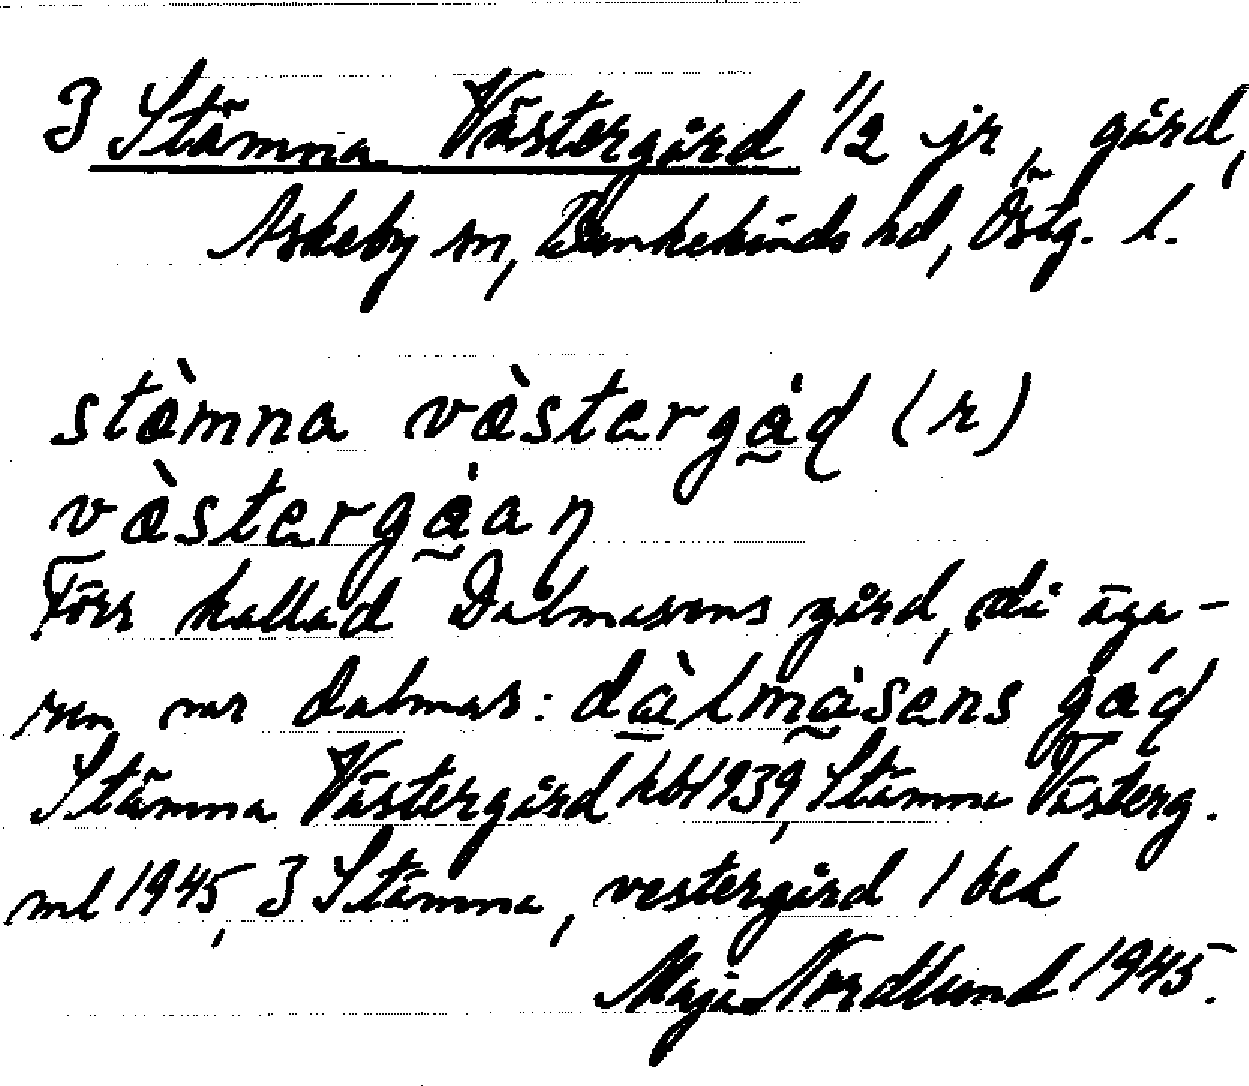 3 Stämna Västergård 1/2 jr, gård,
Askeby sn, Bankekinds hd, Östg. l.
stæ̀mna væ̀stergå̰d (r)
væ̀stergå̰aɳ
Förr kallad Dalmasens gård, då äga-
ren var dalmas: dàlmå̰sens gåd
Stämna Västergård kbl 1939, Stämna Västerg.
ml 1945, 3 Stämna, vestergård 1 bek
Maja Nordlund 1945.